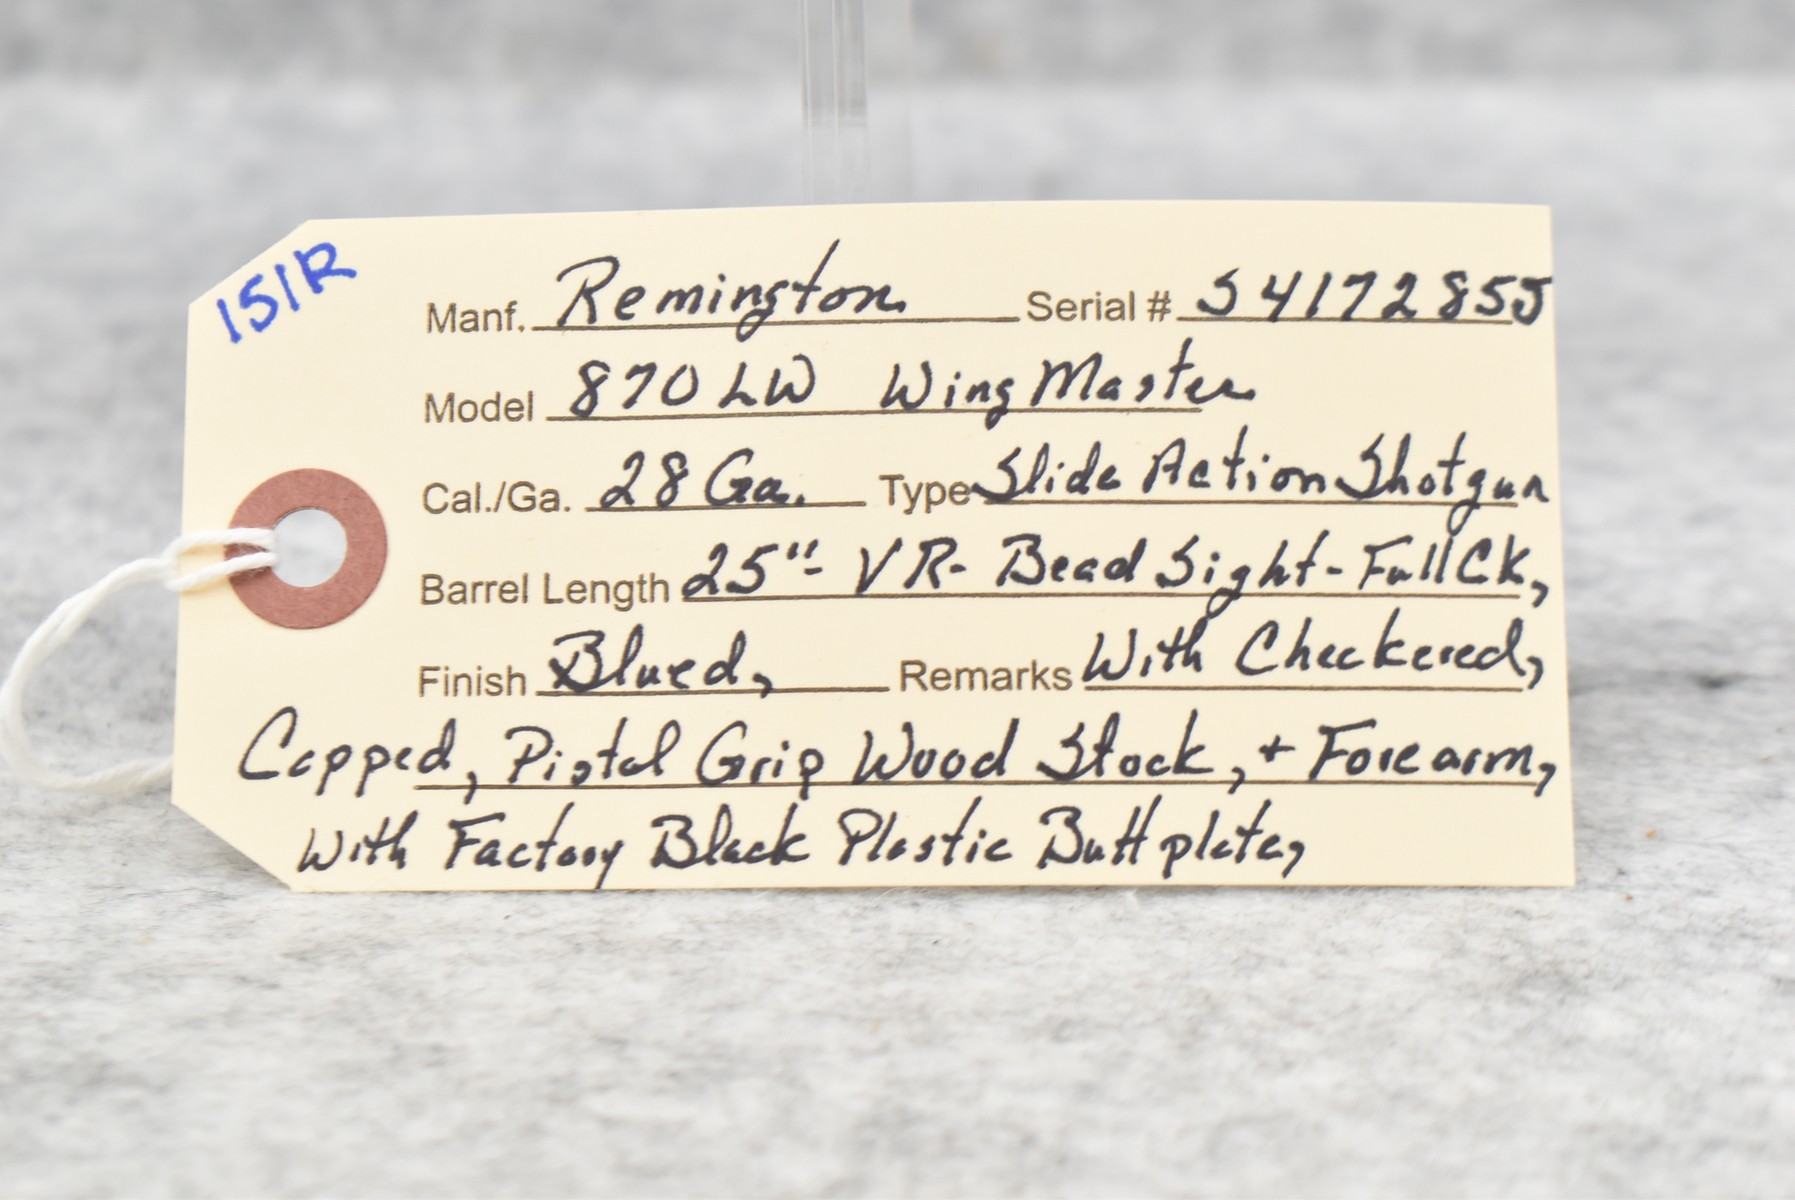 151R
Manf. Remington Serial # S417285J
Model 870 LW WingMaster
Cal./Ga. 28 Ga. Type Slide Action Shotgun
Barrel Length 25"- VR- Bead Sight- Full CK,
Finish Blued, Remarks With Checkered,
Capped, Pistol Grip Wood Stock, + Forearm,
With Factory Black Plastic Buttplate,